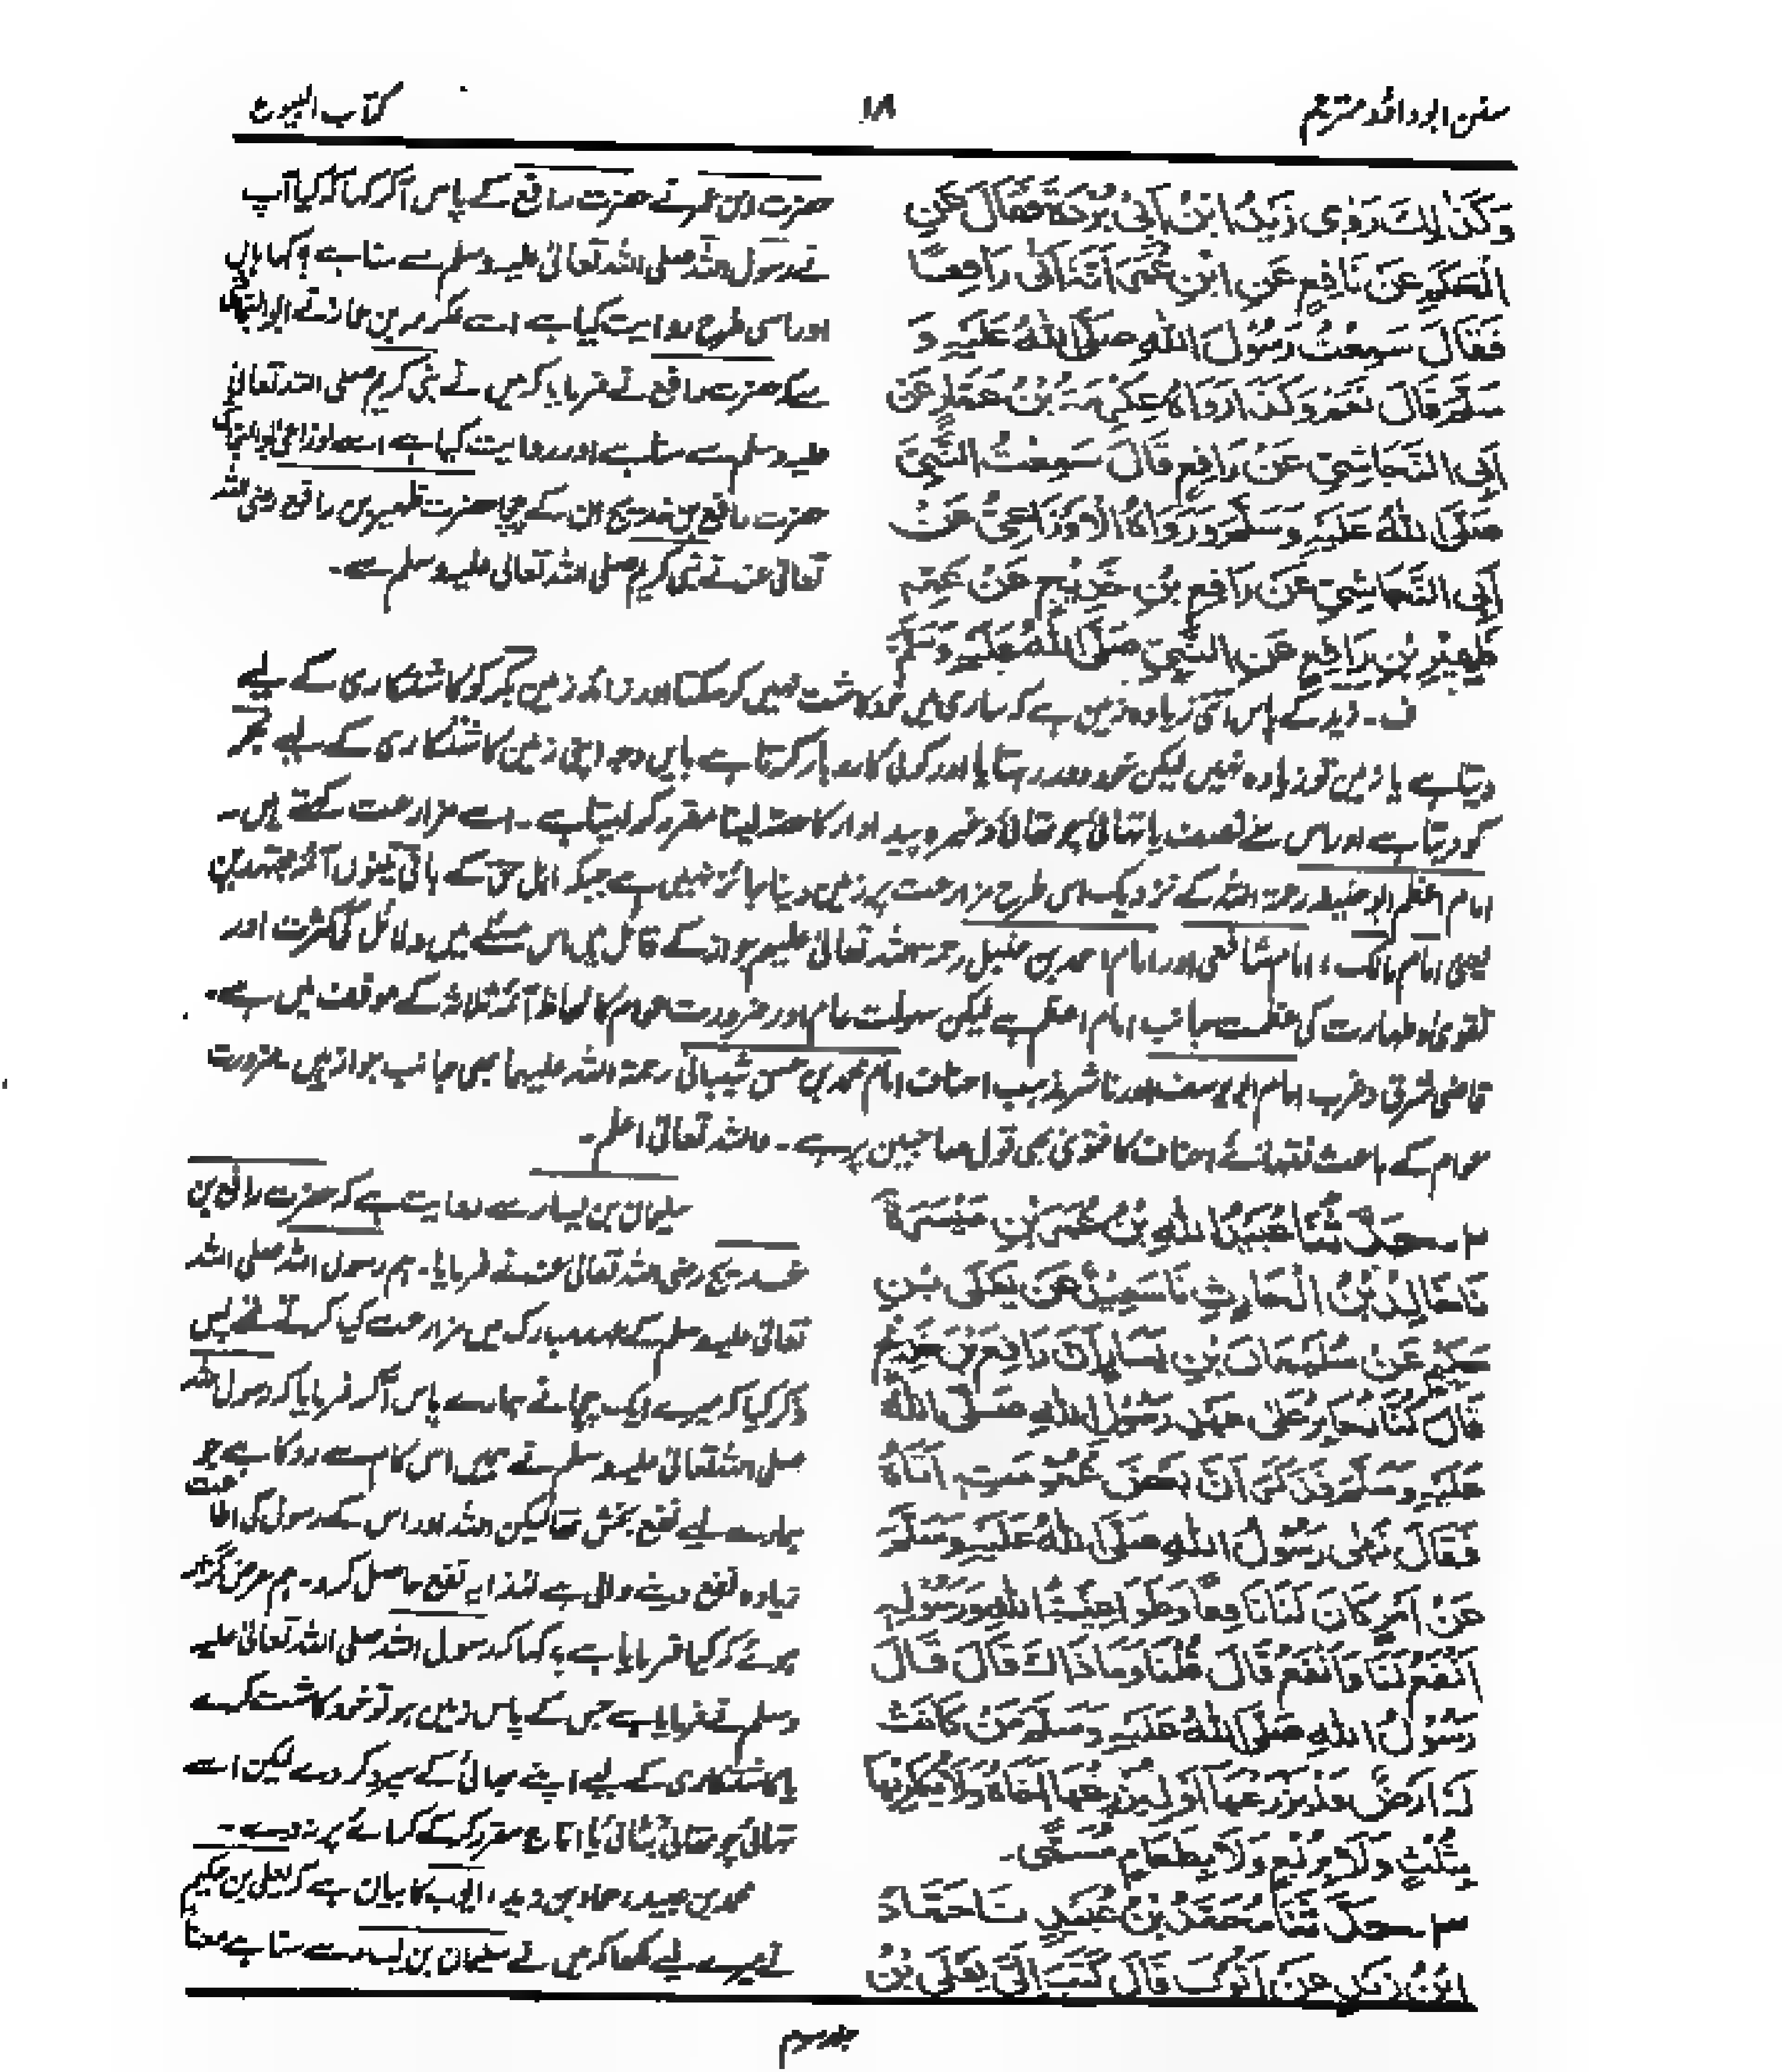 سنن ابوداؤد مترجم
۱۸
کتاب البیوع
وَكَذَالِكَ رَوٰى زَيْدُ ابْنُ اَبِیْ بُرْدَةَ فَقَالَ عَنِ
الْحَكَمِ عَنْ نَافِعٍ عَنِ ابْنِ عُمَرَ اَنَّهٗ اَتٰى رَافِعًا
فَقَالَ سَمِعْتُ رَسُوْلَ اللهِ صَلَّى اللهُ عَلَيْهِ وَ
سَلَّمَ قَالَ نَعَمْ وَكَذَا رَوَاهُ عِكْرِمَةُ بْنُ عَمَّارٍ عَنْ
اَبِی النَّجَاشِیِّ عَنْ رَافِعٍ قَالَ سَمِعْتُ النَّبِیَّ
صَلَّى اللهُ عَلَيْهِ وَسَلَّمَ وَرَوَاهُ الْاَوْزَاعِیُّ عَنْ
اَبِی النَّجَاشِیِّ عَنْ رَافِعِ بْنِ خَدِيْجٍ عَنْ عَمِّهٖ
ظُهَيْرِ بْنِ رَافِعٍ عَنِ النَّبِیِّ صَلَّى اللهُ عَلَيْهِ وَسَلَّمَ
حضرت ابن عمر نے حضرت رافع کے پاس آکر کہا کہ کیا آپ
نے رسول اللہ صلی اللہ تعالیٰ علیہ وسلم سے سنا ہے؟ کہا ہاں
اور اسی طرح روایت کیا ہے اسے عکرمہ بن عمار نے ابو النجاشی
سے کہ حضرت رافع نے فرمایا کہ میں نے نبی کریم صلی اللہ تعالیٰ
علیہ وسلم سے سنا ہے اور روایت کیا ہے اسے اوزاعی ابو النجاشی
حضرت رافع بن خدیج ان کے چچا حضرت ظہیر بن رافع رضی اللہ
تعالیٰ عنہ نے نبی کریم صلی اللہ تعالیٰ علیہ وسلم سے۔
ف۔ زید کے پاس اتنی زیادہ زمین ہے کہ ساری میں خود کاشت نہیں کر سکتا اور زائد زمین بکر کو کاشتکاری کے لیے
دیتا ہے یا زمین تو زیادہ نہیں لیکن خود دور رہتا یا اور کوئی کاروبار کرتا ہے بایں وجہ اپنی زمین کاشتکاری کے لیے بکر
کو دیتا ہے اور اس سے نصف یا تہائی چوتھائی وغیرہ پیداوار کا حصہ لینا مقرر کر لیتا ہے۔ اسے مزارعت کہتے ہیں۔
امام اعظم ابو حنیفہ رحمۃ اللہ کے نزدیک اسی طرح مزارعت پر زمین دینا جائز نہیں ہے جبکہ اہل حق کے باقی تینوں آئمہ مجتہدین
یعنی امام مالک، امام شافعی اور امام احمد بن حنبل رحمہم اللہ تعالیٰ علیہم جواز کے قائل ہیں اس مسئلے میں دلائل کی کثرت اور
تقویٰ و طہارت کی عظمت جانب امام اعظم ہے لیکن سہولت عام اور ضرورت عوام کا لحاظ آئمہ ثلاثہ کے موقف میں ہے۔
قاضی شرق و غرب امام ابو یوسف اور ناشر مذہب احناف امام محمد بن حسن شیبانی رحمۃ اللہ علیہما بھی جانب جواز ہیں۔ ضرورت
عوام کے باعث فقہائے احناف کا فتویٰ بھی قول صاحبین پر ہے۔ واللہ تعالیٰ اعلم۔
۲۔ حَدَّثَنَا عُبَيْدُ اللهِ بْنُ عُمَرَ بْنِ مَيْسَرَةَ
نَا خَالِدُ بْنُ الْحَارِثِ نَا سَعِيْدٌ عَنْ يَعْلَى بْنِ
حَكِيْمٍ عَنْ سُلَيْمَانَ بْنِ يَسَارٍ اَنَّ رَافِعَ بْنَ خَدِيْجٍ
قَالَ كُنَّا نُخَابِرُ عَلٰى عَهْدِ رَسُوْلِ اللهِ صَلَّى اللهُ
عَلَيْهِ وَسَلَّمَ فَذَكَرَ اَنَّ بَعْضَ عُمُوْمَتِهٖ اَتَاهُ
فَقَالَ نَهٰى رَسُوْلُ اللهِ صَلَّى اللهُ عَلَيْهِ وَسَلَّمَ
عَنْ اَمْرٍ كَانَ لَنَا نَافِعًا وَطَوَاعِيَةُ اللهِ وَرَسُوْلِهٖ
اَنْفَعُ لَنَا وَاَنْفَعُ قَالَ قُلْنَا وَمَا ذَاكَ قَالَ قَالَ
رَسُوْلُ اللهِ صَلَّى اللهُ عَلَيْهِ وَسَلَّمَ مَنْ كَانَتْ
لَهٗ اَرْضٌ فَلْيَزْرَعْهَا اَوْ لِيُزْرِعْهَا اَخَاهُ وَلَا يُكْرِيْهَا
بِثُلُثٍ وَلَا بِرُبُعٍ وَلَا بِطَعَامٍ مُسَمًّى۔
۳۔ حَدَّثَنَا مُحَمَّدُ بْنُ عُبَيْدٍ نَا حَمَّادُ
ابْنُ زَيْدٍ عَنْ اَيُّوْبَ قَالَ كَتَبَ اِلَیَّ يَعْلَى بْنُ
سلیمان بن یسار سے روایت ہے کہ حضرت رافع بن
خدیج رضی اللہ تعالیٰ عنہ نے فرمایا۔ ہم رسول اللہ صلی اللہ
تعالیٰ علیہ وسلم کے عہد مبارک میں مزارعت کیا کرتے تھے پس
ذکر کیا کہ میرے ایک چچا نے ہمارے پاس آکر فرمایا کہ رسول اللہ
صلی اللہ تعالیٰ علیہ وسلم نے ہمیں اس کام سے روکا ہے جو
ہمارے لیے نفع بخش تھا لیکن اللہ اور اس کے رسول کی اطاعت
زیادہ نفع دینے والی ہے لہٰذا یہ نفع حاصل کرو۔ ہم عرض گزار
ہوئے کہ کیا فرمایا ہے؟ کہا کہ رسول اللہ صلی اللہ تعالیٰ علیہ
وسلم نے فرمایا ہے جس کے پاس زمین ہو تو خود کاشت کرے
یا کاشتکاری کے لیے اپنے بھائی کے سپرد کر دے لیکن اسے
تہائی چوتھائی بٹائی یا اناج مقرر کر کے کرائے پر نہ دے۔
محمد بن عبید، حماد بن زید، ایوب کا بیان ہے کہ یعلی بن حکیم
نے میرے لیے لکھا کہ میں نے سلیمان بن یسار سے سنا ہے معنًا
جلد سوم